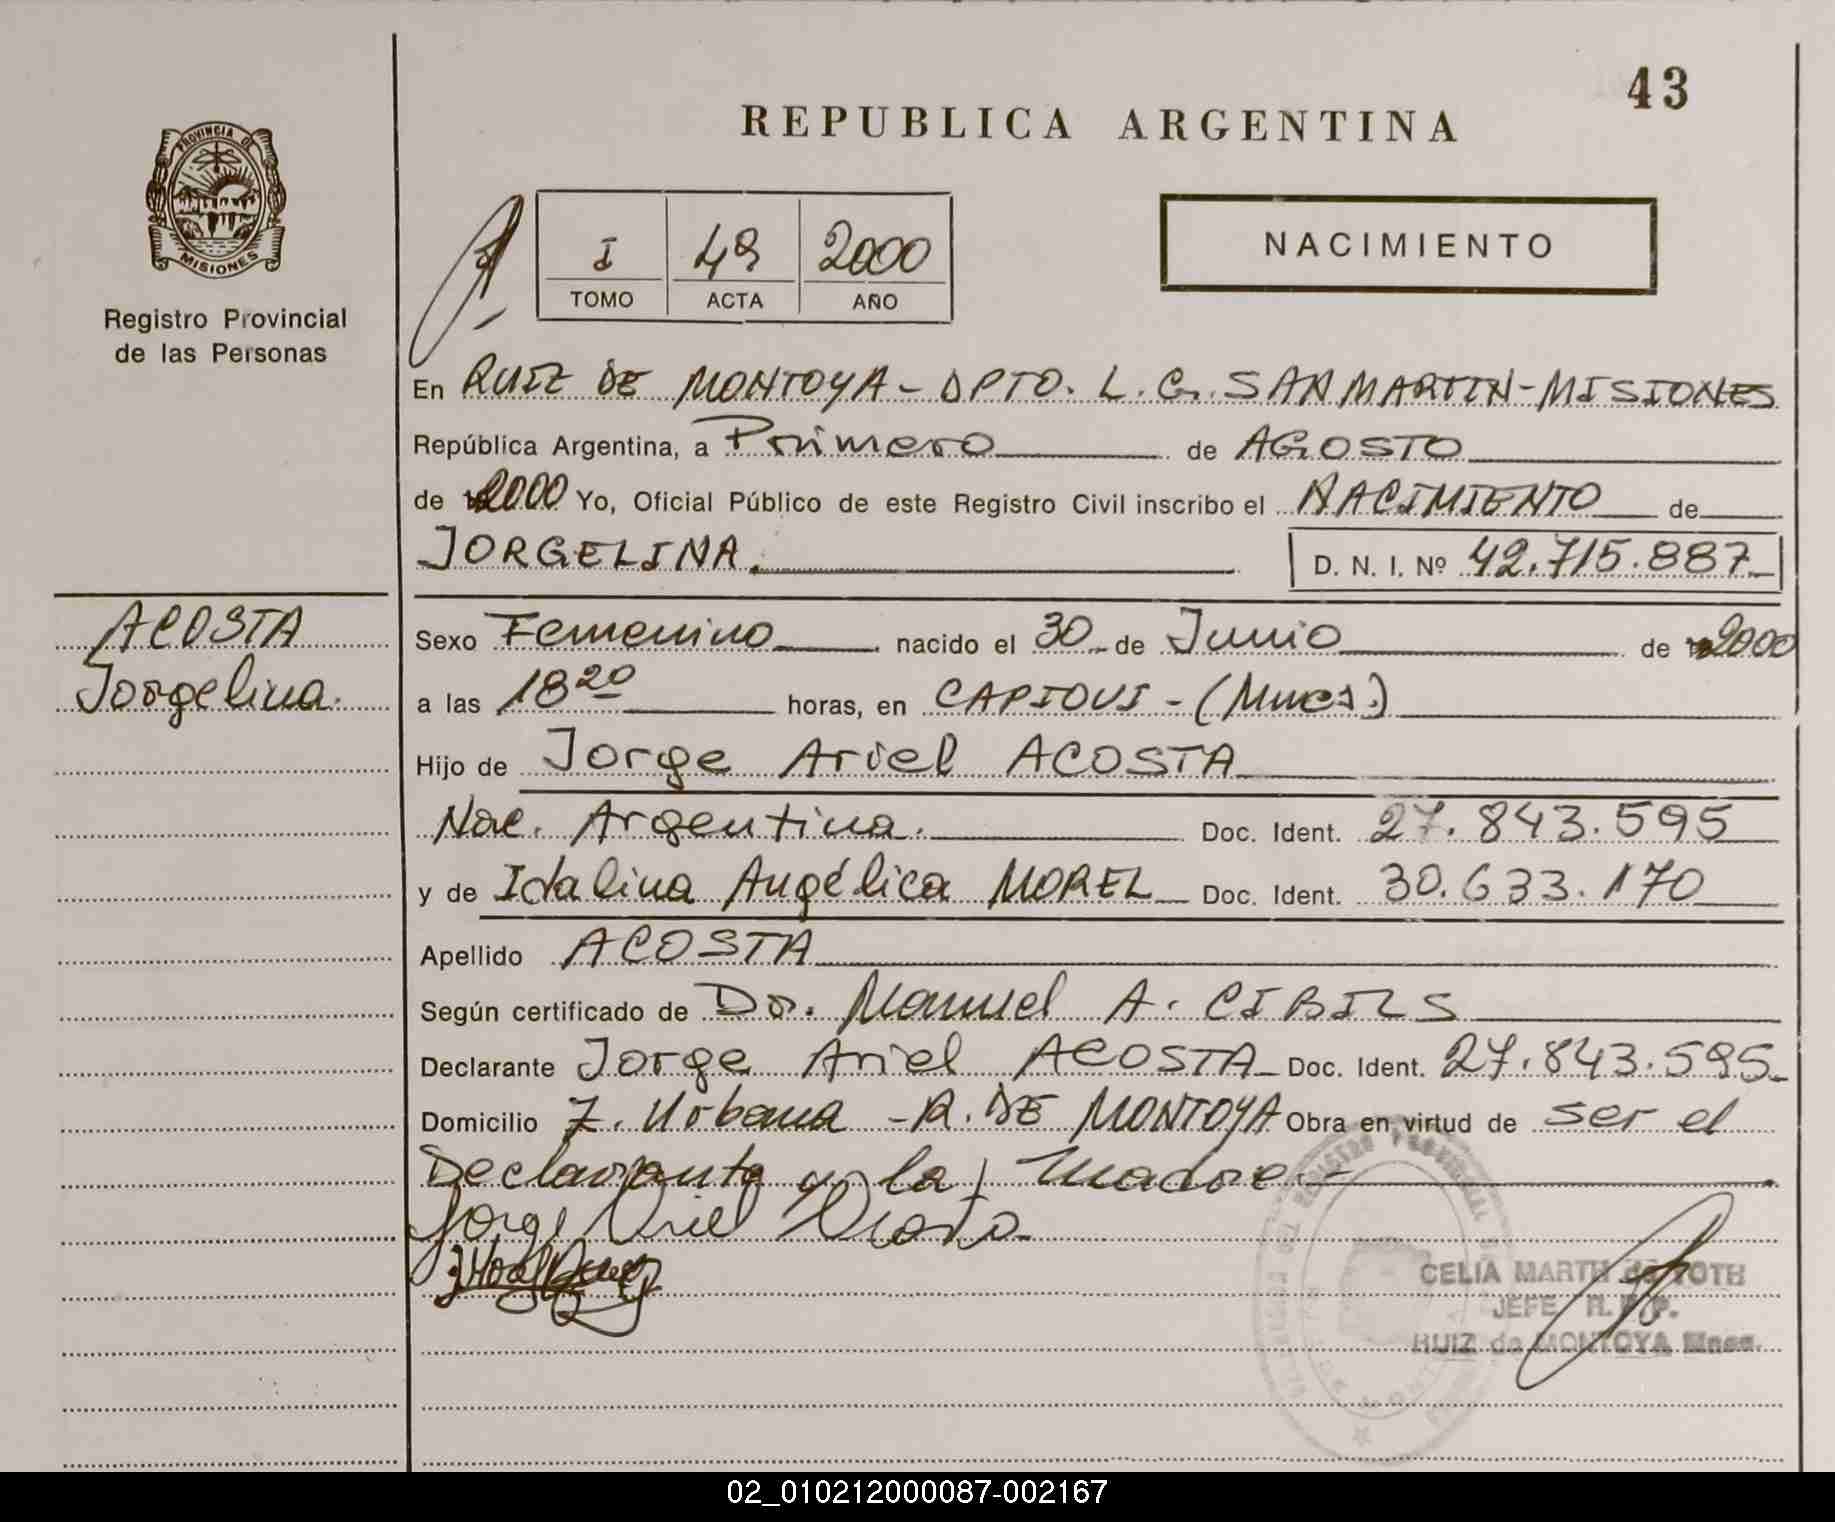 43
REPUBLICA ARGENTINA
PROVINCIA DE
MISIONES
Registro Provincial
de las Personas
I 49 2000
TOMO ACTA AÑO
NACIMIENTO
En RUIZ DE MONTOYA - DPTO. L. G. SAN MARTIN - MISIONES
República Argentina, a Primero de AGOSTO
de 2000 Yo, Oficial Público de este Registro Civil inscribo el NACIMIENTO de
JORGELINA. D. N. I. Nº 42.715.887
ACOSTA
Jorgelina.
Sexo Femenino nacido el 30 de Junio de 2000
a las 18 20 horas, en CAPIOVI - (Mnes.)
Hijo de Jorge Ariel ACOSTA
Nac. Argentina. Doc. Ident. 27.843.595
y de Idalina Angélica MOREL Doc. Ident. 30.633.170
Apellido ACOSTA
Según certificado de Dr. Manuel A. CIBILS
Declarante Jorge Ariel ACOSTA Doc. Ident. 27.843.595
Domicilio Z. Urbana - R. DE MONTOYA Obra en virtud de ser el
Declarante y la Madre.-
Jorge Ariel Acosta
CELIA MARTH de TOTH
JEFE R. P. P.
RUIZ de MONTOYA Mnes.
02_010212000087-002167